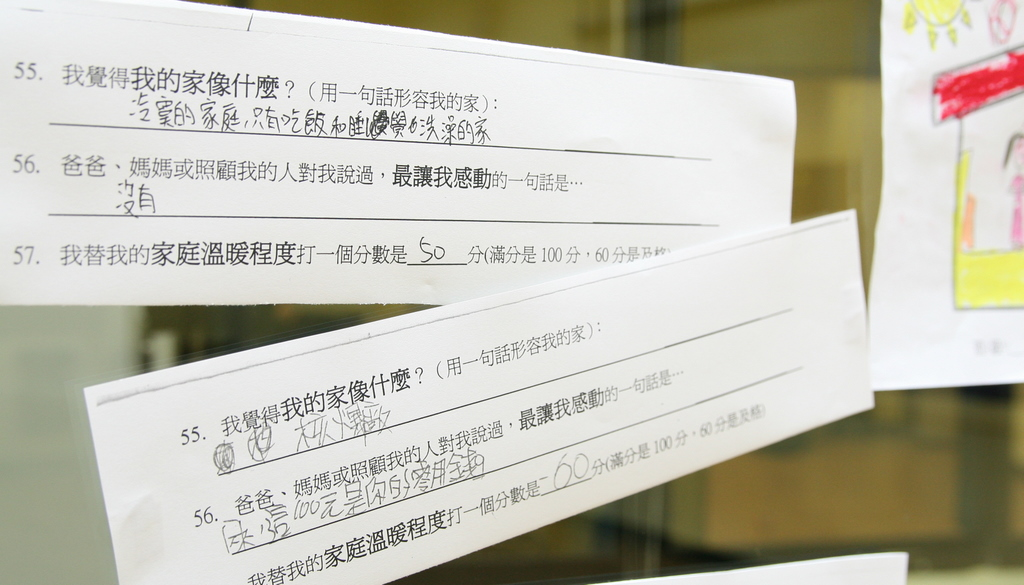 55. 我覺得我的家像什麼？（用一句話形容我的家）：
冷雲的家庭,只有吃飯和睡覺洗澡的家
56. 爸爸、媽媽或照顧我的人對我說過，最讓我感動的一句話是…
沒有
57. 我替我的家庭溫暖程度打一個分數是 50 分(滿分是 100 分，60 分是及格)
55. 我覺得我的家像什麼？（用一句話形容我的家）：
核爆
56. 爸爸、媽媽或照顧我的人對我說過，最讓我感動的一句話是…
來 這100元是你的零用錢
我替我的家庭溫暖程度打一個分數是 60 分(滿分是 100 分，60 分是及格)